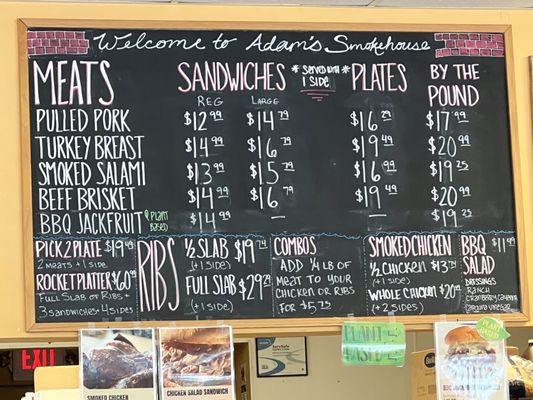 Welcome to Adam's Smokehouse
MEATS SANDWICHES *SERVED w/ 1 SIDE* PLATES BY THE POUND
REG LARGE
PULLED PORK $12.99 $14.79 $16.29 $17.99
TURKEY BREAST $14.99 $16.79 $19.49 $20.99
SMOKED SALAMI $13.99 $15.79 $16.99 $19.25
BEEF BRISKET $14.99 $16.79 $19.49 $20.99
BBQ JACKFRUIT PLANT BASED $14.99 — — $19.25
PICK 2 PLATE $19.49
2 MEATS + 1 SIDE
ROCKET PLATTER $60.99
FULL SLAB OF RIBS +
3 SANDWICHES + 4 SIDES
RIBS
½ SLAB $19.74
(+1 SIDE)
FULL SLAB $29.24
(+1 SIDE)
COMBOS
ADD ¼ LB OF
MEAT TO YOUR
CHICKEN OR RIBS
FOR $5.75
SMOKED CHICKEN
½ CHICKEN $13.74
(+1 SIDE)
WHOLE CHICKEN $20.99
(+2 SIDES)
BBQ $11.99
SALAD
DRESSINGS
RANCH
EXIT
SMOKED CHICKEN
CHICKEN SALAD SANDWICH
PLANT
BASED
PLANT
BASED
ServSafe